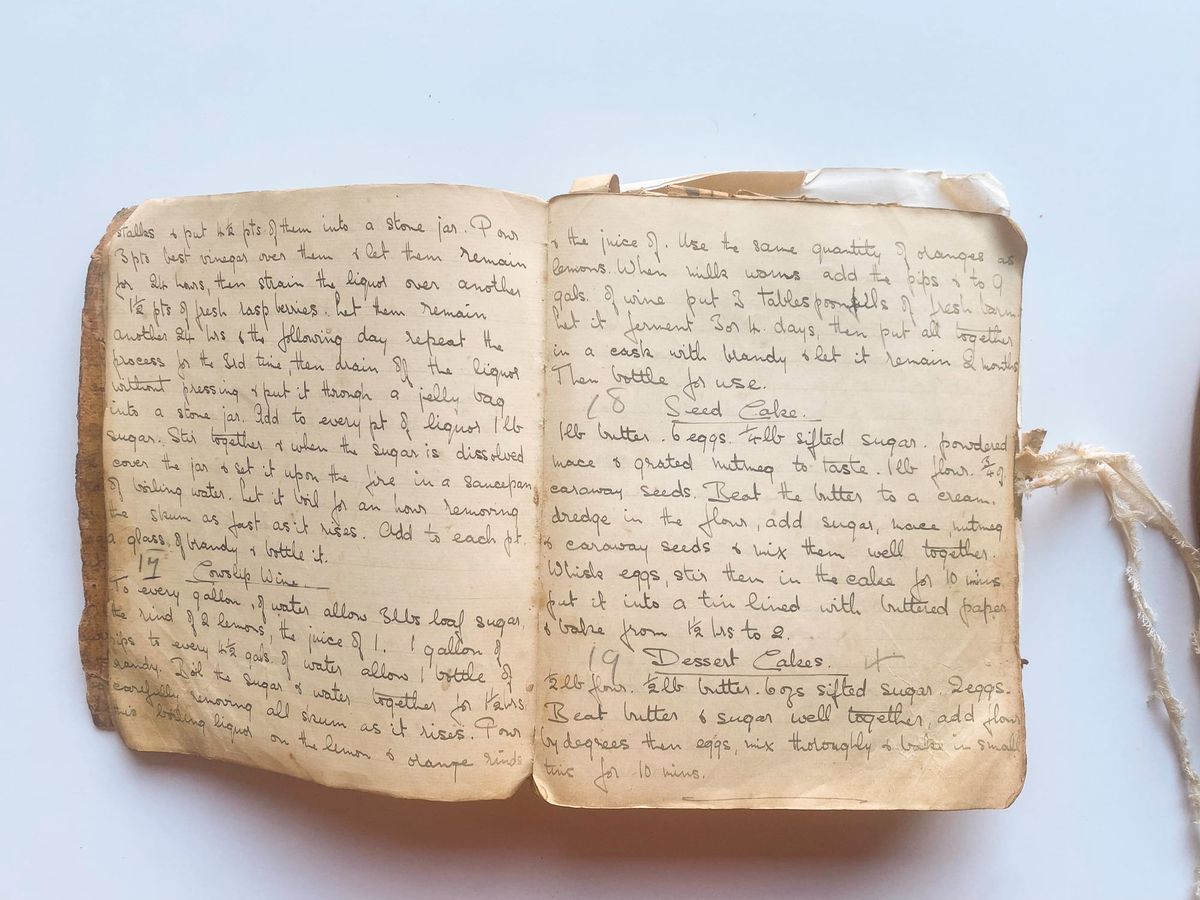 stalks & put 4½ pts of them into a stone jar. Pour
3 pts best vinegar over them & let them remain
for 24 hours, then strain the liquor over another
1½ pts of fresh raspberries. Let them remain
another 24 hrs & the following day repeat the
process for the 3rd time, then drain off the liquor
without pressing & put it through a jelly bag
into a stone jar. Add to every pt of liquor 1 lb
sugar. Stir together & when the sugar is dissolved
cover the jar & set it upon the fire in a saucepan
of boiling water. Let it boil for an hour removing
the skum as fast as it rises. Add to each pt.
a glass of brandy & bottle it.
17 Cowslip Wine.
To every gallon of water allow 3 lbs loaf sugar,
the rind of 2 lemons, the juice of 1. 1 gallon of
pips to every 4½ gals of water allow 1 bottle of
brandy. Boil the sugar & water together for 1½ hrs
carefully removing all skum as it rises. Pour
this boiling liquor on the lemon & orange rinds
& the juice of. Use the same quantity of oranges as
lemons. When milk warm add the pips & to 9
gals. of wine put 3 tablespoonfulls of fresh barm
Let it ferment 3 or 4 days, then put all together
in a cask with brandy & let it remain 2 months
Then bottle for use.
18 Seed Cake.
1 lb butter. 6 eggs. ¾ lb sifted sugar. powdered
mace & grated nutmeg to taste. 1 lb flour. ¾ oz
caraway seeds. Beat the butter to a cream.
dredge in the flour, add sugar, mace, nutmeg
& caraway seeds & mix them well together.
Whisk eggs, stir them in the cake for 10 mins
put it into a tin lined with buttered paper
& bake from 1½ hrs to 2.
19 Dessert Cakes.
½ lb flour. ½ lb butter. 6 ozs sifted sugar. 2 eggs.
Beat butter & sugar well together, add flour
by degrees then eggs, mix thoroughly & bake in small
tins for 10 mins.